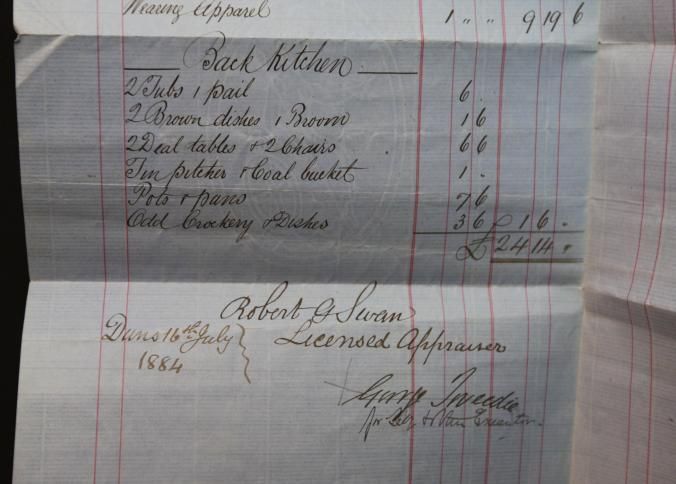 Wearing Apparel 1 " " 9 19 6
Back Kitchen
2 Tubs 1 pail 6 .
2 Brown dishes 1 Broom 1 6
2 Deal tables & 2 Chairs 6 6
Tin pitcher & Coal bucket 1 .
Pots & pans 7 6
Odd Crockery & Dishes 3 6 1 6 .
£ 24 14 .
Robert G Swan
Duns 16th July
Licensed Appraiser
1884
George Tweedie
for self &